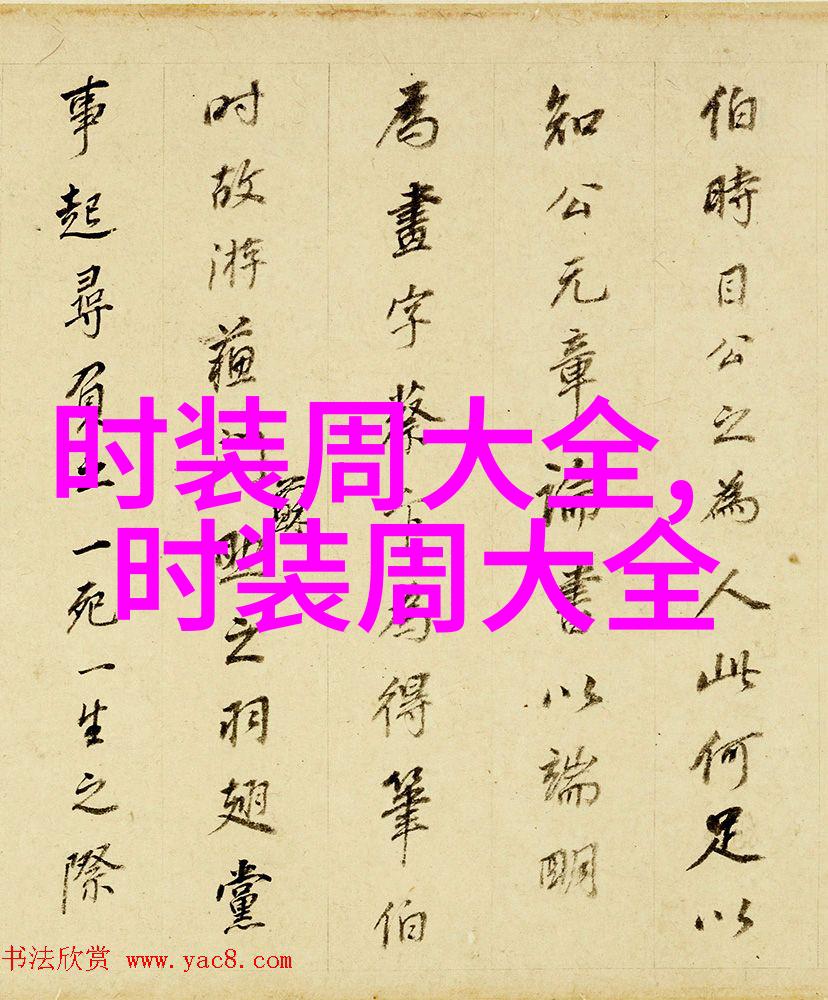 伯時目公之為人此何足以
知公元章論書以端明
爲畫字蔡卞爲得筆伯
时故游蘓之羽翅黨
事起尋負之一死一生之際
时装周大全,
时装周大全
书法欣赏 www.yac8.com